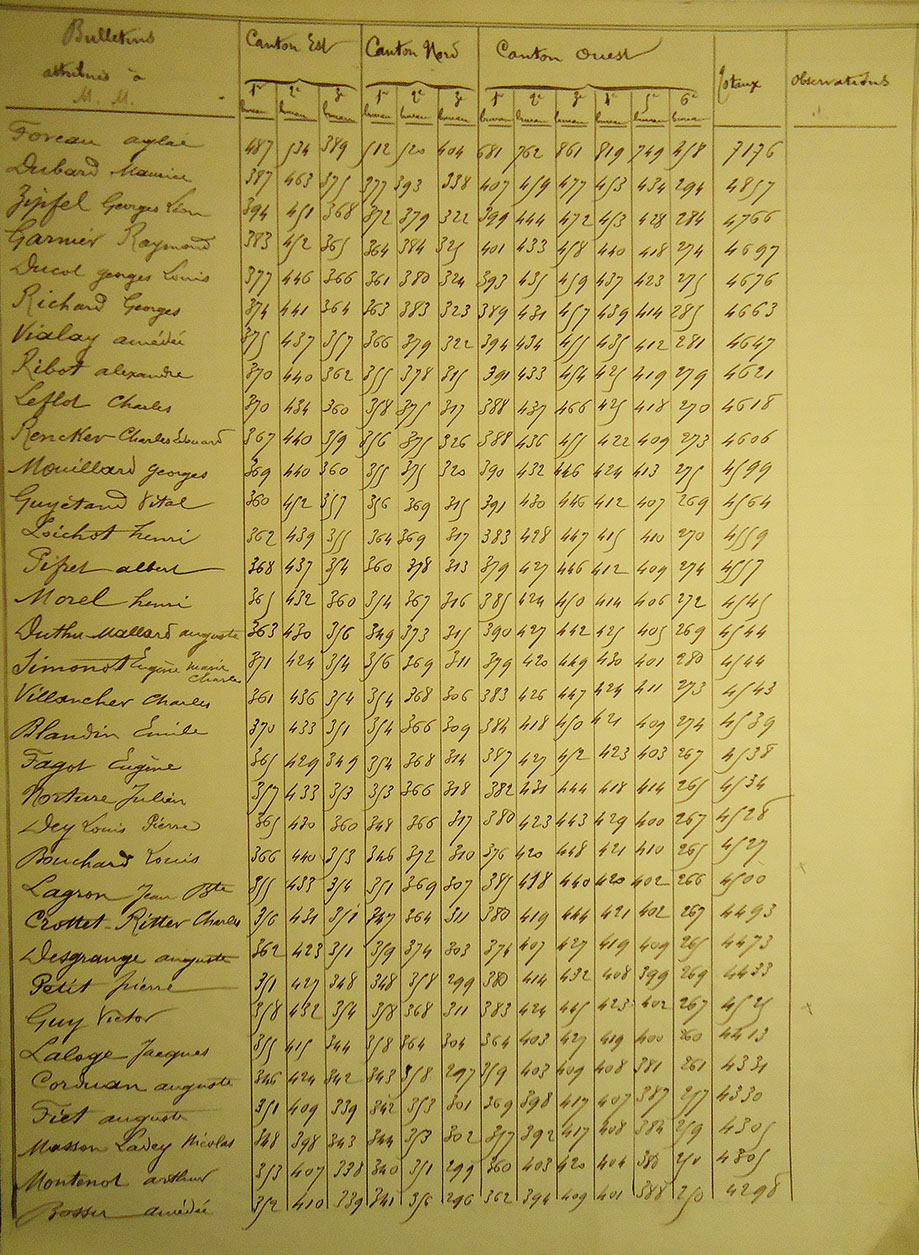 Bulletins attribués à M. M. Canton Est Canton Nord Canton Ouest Totaux Observations
1er bureau 2e bureau 3e bureau 1er bureau 2e bureau 3e bureau 1er bureau 2e bureau 3e bureau 4e bureau 5e bureau 6e bureau
Foveau aglaé 487 534 389 512 520 404 681 762 861 819 749 458 7176
Dubard Maurice 387 463 375 377 393 338 407 459 477 453 434 294 4857
Zipfel Georges Léon 394 451 368 372 379 322 399 444 472 453 428 284 4766
Garnier Raymond 383 452 365 364 384 325 401 433 458 440 418 274 4697
Ducot georges Louis 377 446 366 361 380 324 393 435 459 437 423 275 4676
Richard Georges 374 441 364 363 383 323 389 431 457 439 414 285 4663
Vialay amédée 375 437 357 366 379 322 394 434 455 435 412 281 4647
Ribot alexandre 370 440 362 355 378 315 391 433 454 425 419 279 4621
Leflot Charles 370 434 360 358 375 317 388 437 466 425 418 270 4618
Rencker Charles Edouard 367 440 359 356 375 326 388 436 455 422 409 273 4606
Mouillard georges 369 440 360 355 375 320 390 432 446 424 413 275 4599
Guyétand Vital 360 452 357 356 369 315 391 430 446 412 407 269 4564
Loichot henri 362 439 355 364 369 317 383 428 447 415 410 270 4559
Pifret albert 368 437 354 360 378 313 379 427 446 412 409 274 4557
Morel henri 365 432 360 354 367 316 385 424 450 414 406 272 4545
Duthu-Mallard auguste 363 430 356 349 373 315 390 427 442 425 405 269 4544
Simonot Eugène Marie Charles 371 424 354 356 369 311 379 420 449 430 401 280 4544
Villancher Charles 361 436 354 354 368 306 383 426 447 424 411 273 4543
Blandin Emile 370 433 351 354 366 309 384 418 450 421 409 274 4539
Fagot Eugène 365 429 349 354 368 314 387 427 452 423 403 267 4538
Norture Julien 357 433 353 353 366 318 382 431 444 418 414 265 4534
Dey Louis Pierre 365 430 360 348 366 317 380 423 443 429 400 267 4528
Bouchard Louis 366 440 353 346 372 310 376 420 448 421 410 265 4527
Lagron Jean Bte 355 433 354 351 369 307 385 418 440 420 402 266 4500
Crottet-Ritter Charles 356 431 351 347 364 311 380 419 444 421 402 267 4493
Desgrange auguste 362 423 351 359 374 303 374 407 427 419 409 265 4473
Petit pierre 351 427 348 348 358 299 380 414 432 408 399 269 4433
Guy Victor 358 432 354 358 368 311 383 424 445 423 402 267 4525
Laloge Jacques 355 415 344 358 364 304 364 403 427 419 400 260 4413
Corduan auguste 346 424 342 343 358 297 359 403 409 408 381 261 4331
Fiet auguste 351 409 339 342 353 301 369 398 417 407 387 257 4330
Masson Ladey Nicolas 348 398 343 344 353 302 357 392 417 408 384 259 4305
Montenot arthur 353 407 338 340 351 299 360 403 420 404 380 250 4305
Bosser amédée 352 410 339 341 356 296 362 394 409 401 388 250 4298